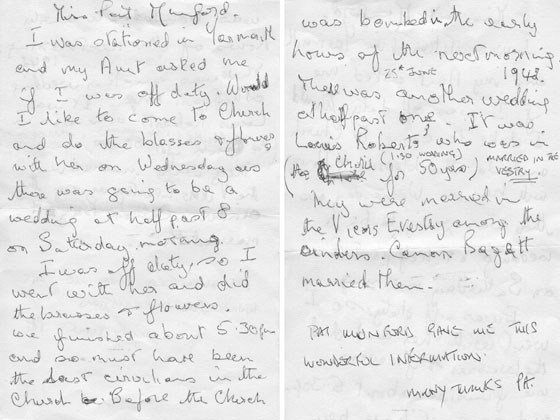 Miss Pat Munford.
I was stationed in Yarmouth
and my Aunt asked me
if I was off duty. Would
I like to come to Church
and do the brasses & flowers
with her on Wednesday as
there was going to be a
wedding at half past 8
on Saturday morning.
I was off duty, so I
went with her and did
the brasses & flowers.
we finished about 5.30pm
and so must have been
the last civilians in the
Church Before the Church
was bombed in the early
hours of the next morning
25th JUNE 1942.
There was another wedding
at half past one. It was
Louis Roberts' who was in
(the Choir for 50 years)
(1.30 WEDDING) MARRIED IN THE
VESTRY
They were married in
the Vicars Evestry among the
cinders. Canon Baggott
married them.
PAT MUNFORD GAVE ME THIS
WONDERFUL INFORMATION.
MANY THANKS PAT.